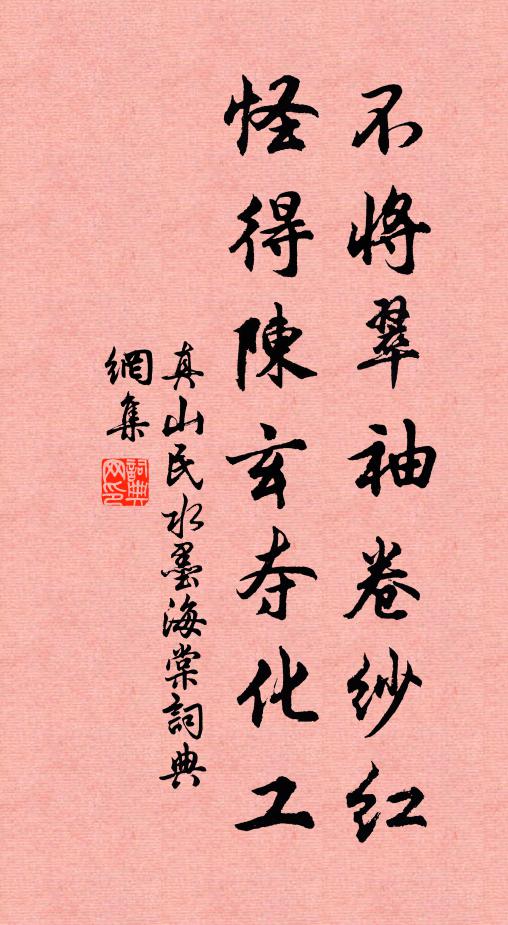 不將翠袖卷紗紅
怪得陳玄夺化工
真山民水墨海棠詞典
網集
詞典網印